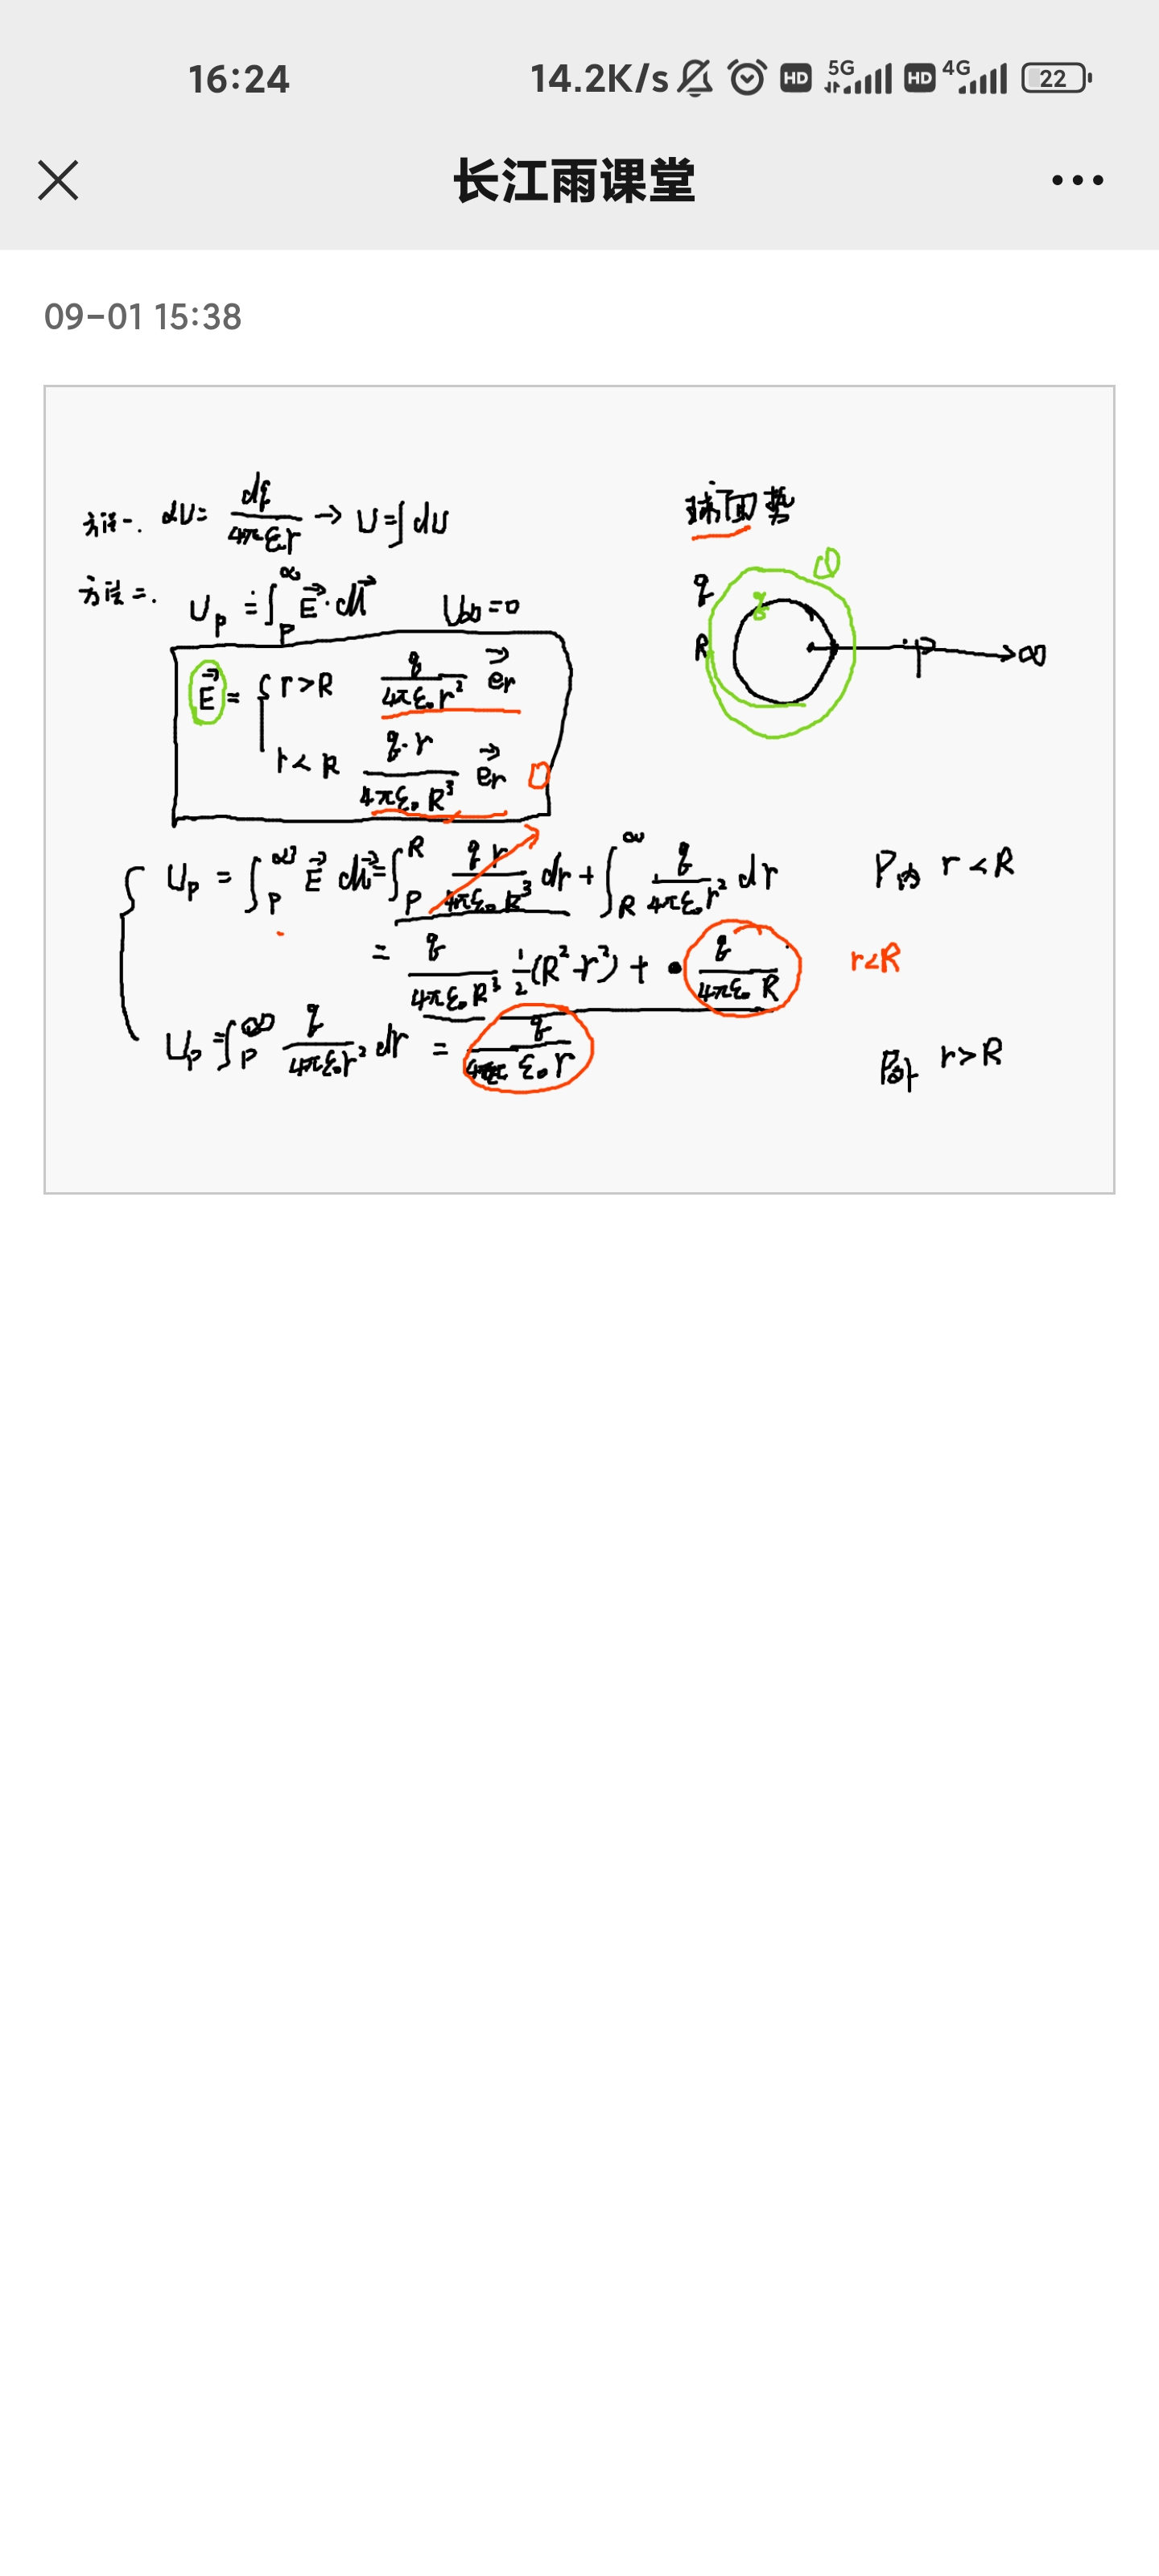 16:24 14.2K/s HD 5G HD 4G 22
长江雨课堂
09-01 15:38
方法一. dU = dq/4πε₀r → U=∫dU
球面势
方法二. U_P = ∫_P^∞ E⃗·dl⃗ U∞=0
q
q
R
P
∞
E⃗ = { r>R q/4πε₀r² e⃗r
r<R q·r/4πε₀R³ e⃗r 0
U_P = ∫_P^∞ E⃗ dl⃗ = ∫_P^R qr/4πε₀R³ dr + ∫_R^∞ q/4πε₀r² dr P内 r<R
= q/4πε₀R³ 1/2(R²-r²) + q/4πε₀R r<R
U_P = ∫_P^∞ q/4πε₀r² dr = q/4πε₀r P外 r>R